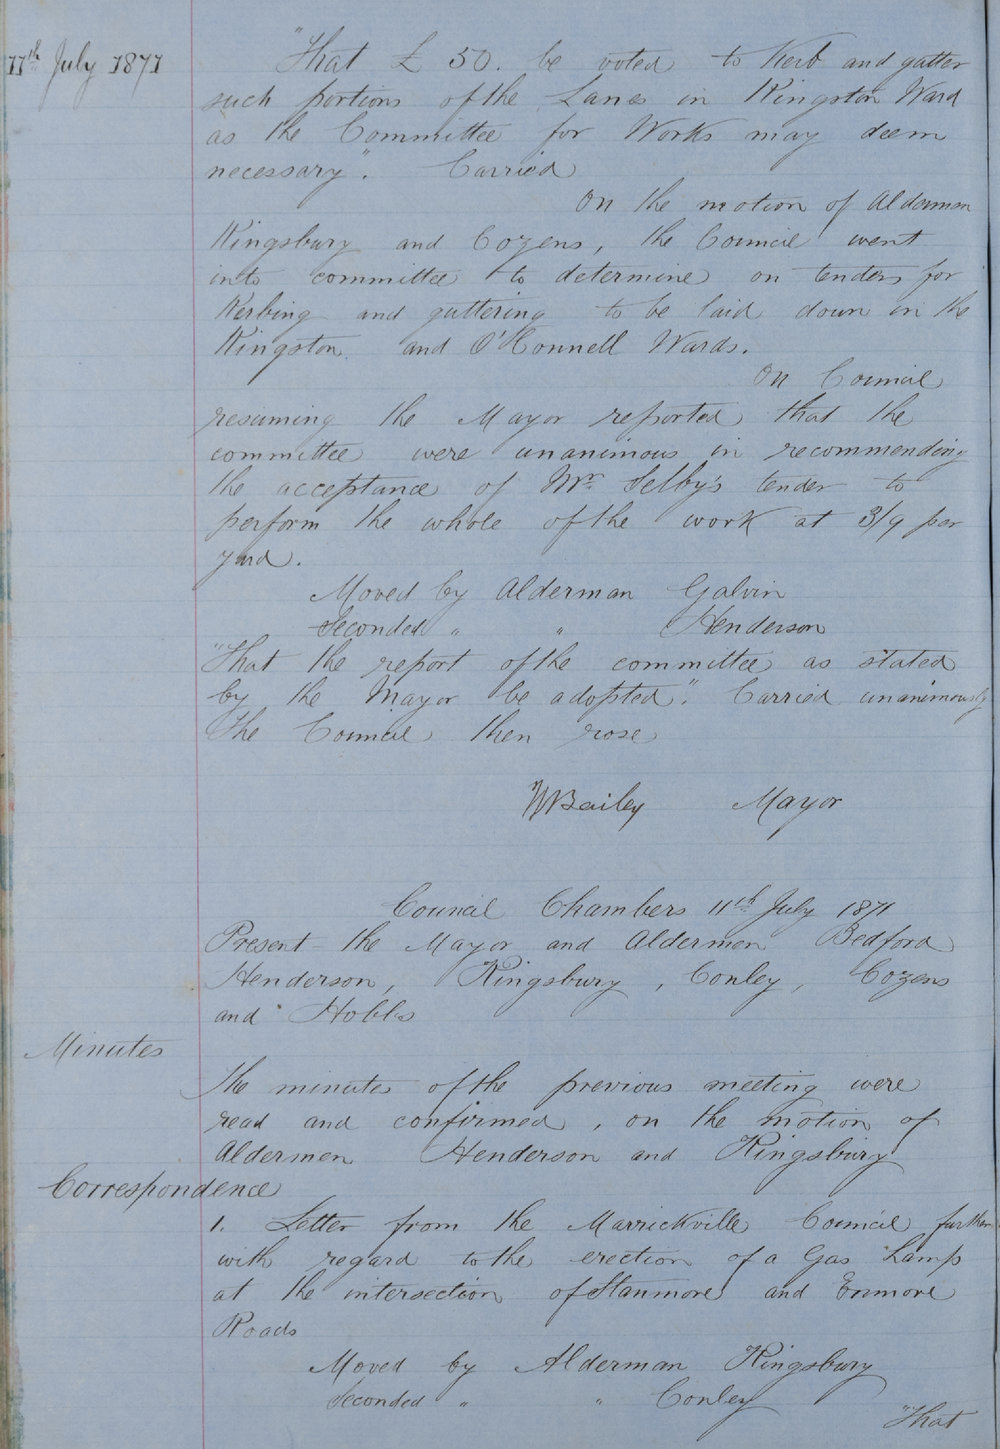 11th July 1871
"That £50. be voted to Kerb and gutter
such portions of the Lanes in Kingston Ward
as the Committee for Works may deem
necessary". Carried
On the motion of Aldermen
Kingsbury and Cozens, the Council went
into committee to determine on tenders for
Kerbing and guttering to be laid down in the
Kingston and O'Connell Wards.
On Council
resuming the Mayor reported that the
committee were unanimous in recommending
the acceptance of Mr. Selby's tender to
perform the whole of the work at 3/9 per
yard.
Moved by Alderman Galvin
Seconded " " Henderson
"That the report of the committee as stated
by the Mayor be adopted". Carried unanimously
The Council then rose
Bailey Mayor
Council Chambers 11th July 1871
Present the Mayor and Aldermen Bedford
Henderson, Kingsbury, Conley, Cozens
and Hobbs
Minutes
The minutes of the previous meeting were
read and confirmed, on the motion of
Aldermen Henderson and Kingsbury
Correspondence
1. Letter from the Marrickville Council further
with regard to the erection of a Gas Lamp
at the intersection of Stanmore and Enmore
Roads
Moved by Alderman Kingsbury
Seconded " " Conley
"That